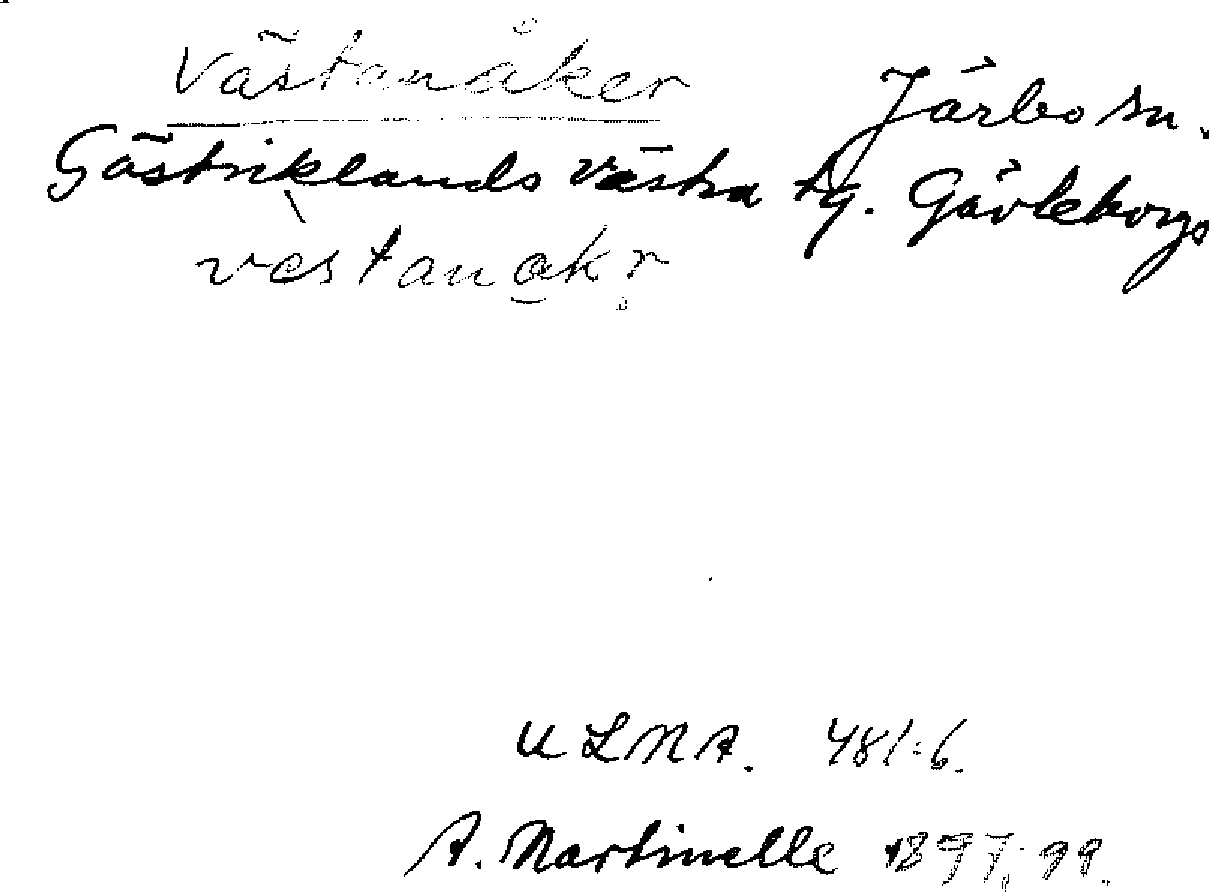 Västanåker Järbo sn.
Gästriklands västra tg. Gävleborgs
vèstanak̥r
ULMA. 481:6.
A. Martinelle 1897, 99.